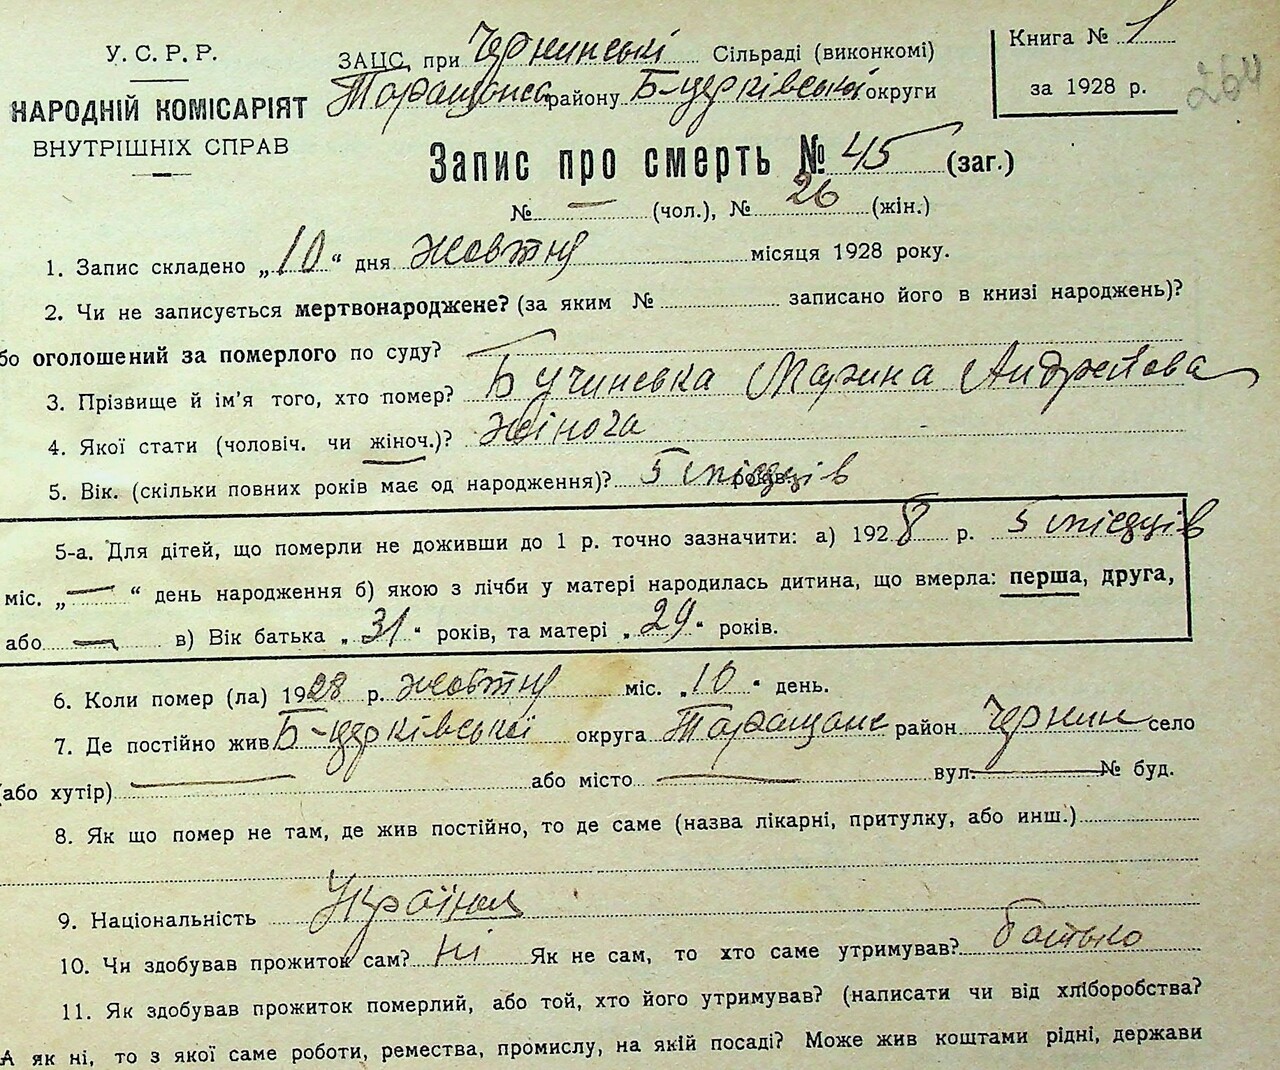 У. С. Р. Р.
НАРОДНІЙ КОМІСАРІЯТ
ВНУТРІШНІХ СПРАВ
ЗАЦС при Чернинські Сільраді (виконкомі)
Таращанс району Б-церківської округи
Книга № 1
за 1928 р.
264
Запис про смерть № 45 (заг.)
№ — (чол.), № 26 (жін.)
1. Запис складено „10“ дня жовтня місяця 1928 року.
2. Чи не записується мертвонароджене? (за яким № записано його в книзі народжень)?
бо оголошений за померлого по суду?
3. Прізвище й ім'я того, хто помер? Бучинська Марина Андреївова
4. Якої стати (чоловіч. чи жіноч.)? жіноча
5. Вік. (скільки повних років має од народження)? 5 місяців років.
5-а. Для дітей, що померли не доживши до 1 р. точно зазначити: а) 1928 р. 5 місяців
міс. „—“ день народження б) якою з лічби у матері народилась дитина, що вмерла: перша, друга,
або — в) Вік батька „31“ років, та матері „29“ років.
6. Коли помер (ла) 1928 р. жовтня міс. „10“ день.
7. Де постійно жив Б-церківської округа Таращанс район Чернин село
(або хутір) — або місто — вул. — № буд.
8. Як що помер не там, де жив постійно, то де саме (назва лікарні, притулку, або инш.)
9. Національність Українка
10. Чи здобував прожиток сам? Ні Як не сам, то хто саме утримував? батько
11. Як здобував прожиток померлий, або той, хто його утримував? (написати чи від хліборобства?
А як ні, то з якої саме роботи, ремества, промислу, на якій посаді? Може жив коштами рідні, держави